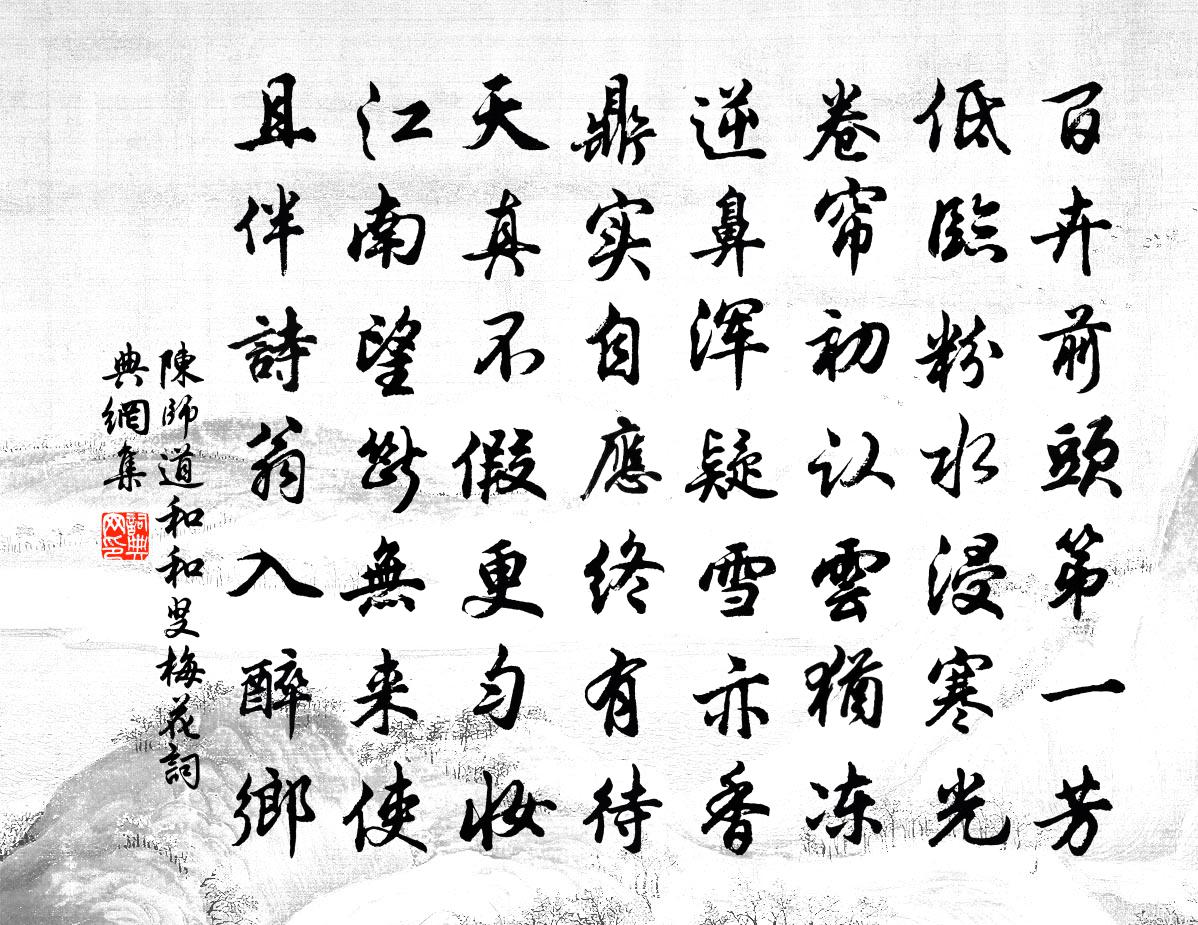 百卉前頭第一芳
低臨粉水浸寒光
卷帘初认雲猶冻
逆鼻渾疑雪亦香
鼎实自應终有待
天真不假更匀妆
江南望斷無来使
且伴詩翁入醉鄉
陳師道和和叟梅花詞
典網集
詞典
网印